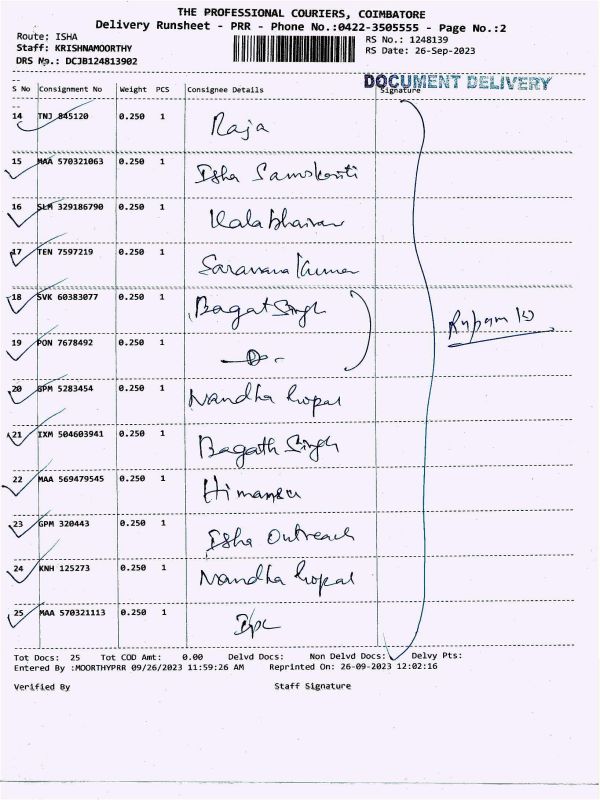 THE PROFESSIONAL COURIERS, COIMBATORE
Delivery Runsheet - PRR - Phone No.:0422-3505555 - Page No.:2
Route: ISHA
RS No.: 1248139
Staff: KRISHNAMOORTHY
RS Date: 26-Sep-2023
DRS No.: DCJB124813902
DOCUMENT DELIVERY
S No Consignment No Weight PCS Consignee Details Signature
14 TNJ 845120 0.250 1 Raja
15 MAA 570321063 0.250 1 Isha Samskriti
16 SLM 329186790 0.250 1 Kalabhairav
17 TEN 7597219 0.250 1 Saravana Kumar
18 SVK 60383077 0.250 1 Bagat Singh
19 PON 7678492 0.250 1 -Do-
20 GPM 5283454 0.250 1 Nandha Gopal
21 IXM 504603941 0.250 1 Bagath Singh
22 MAA 569479545 0.250 1 Himansu
23 GPM 320443 0.250 1 Isha Outreach
24 KNH 125273 0.250 1 Nandha Gopal
25 MAA 570321113 0.250 1
Tot Docs: 25 Tot COD Amt: 0.00 Delvd Docs: Non Delvd Docs: Delvy Pts:
Entered By :MOORTHYPRR 09/26/2023 11:59:26 AM Reprinted On: 26-09-2023 12:02:16
Verified By Staff Signature